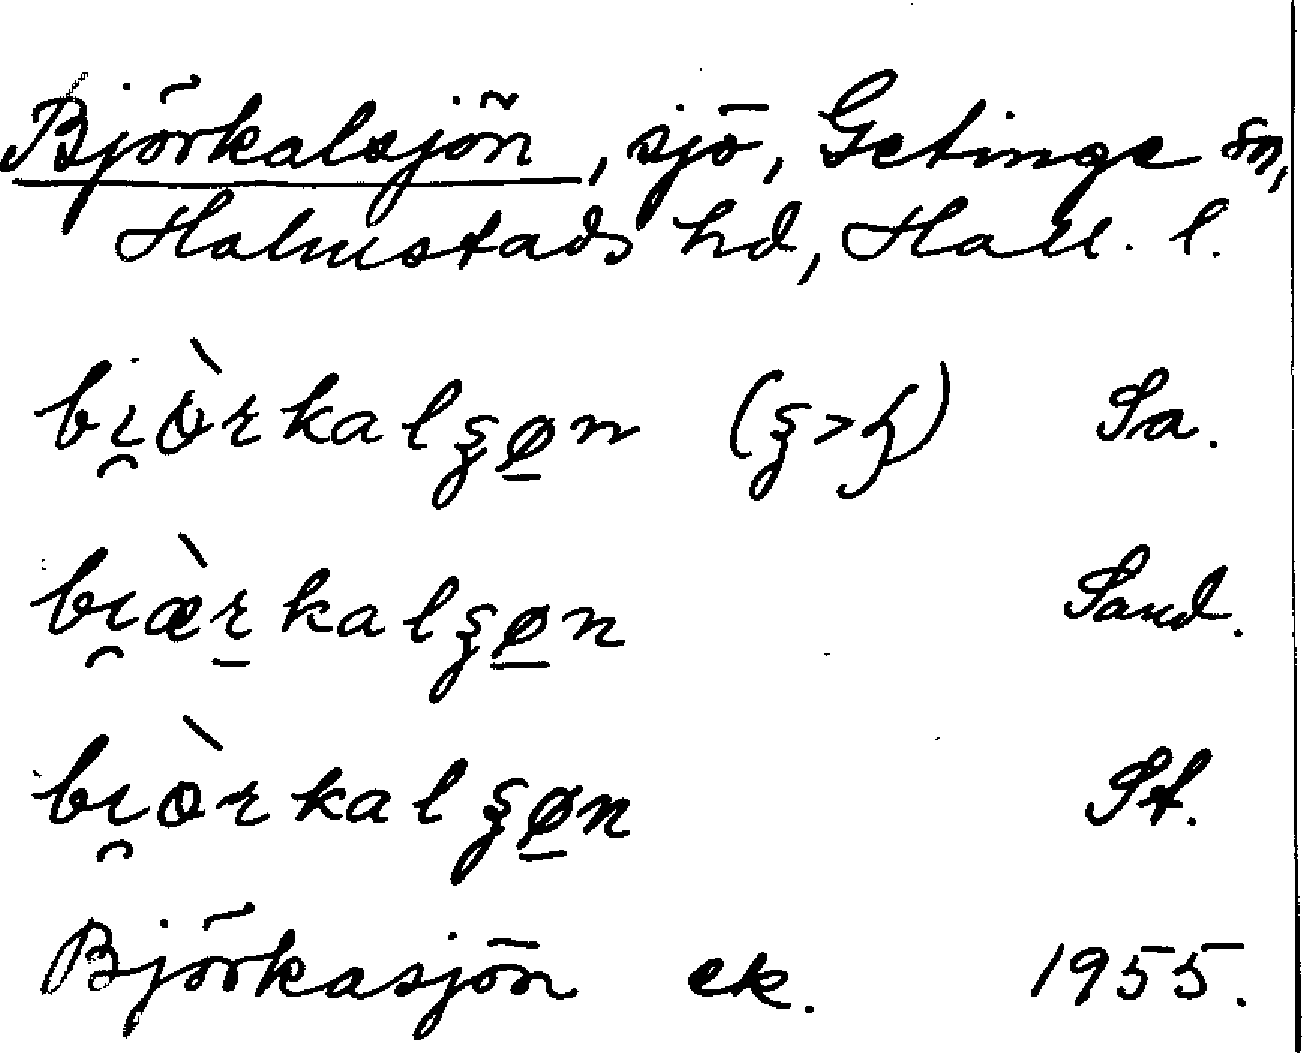 Björkalsjön, sjö, Getinge sn,
Halmstads hd, Hall. l.
bı̯ò̱rkalʂø̠n (ʂ>ɧ) Sa.
bı̯æ̀r̠kalʂø̠n Sand.
bı̯òrkalʂø̠n St.
Björkasjön ek. 1955.